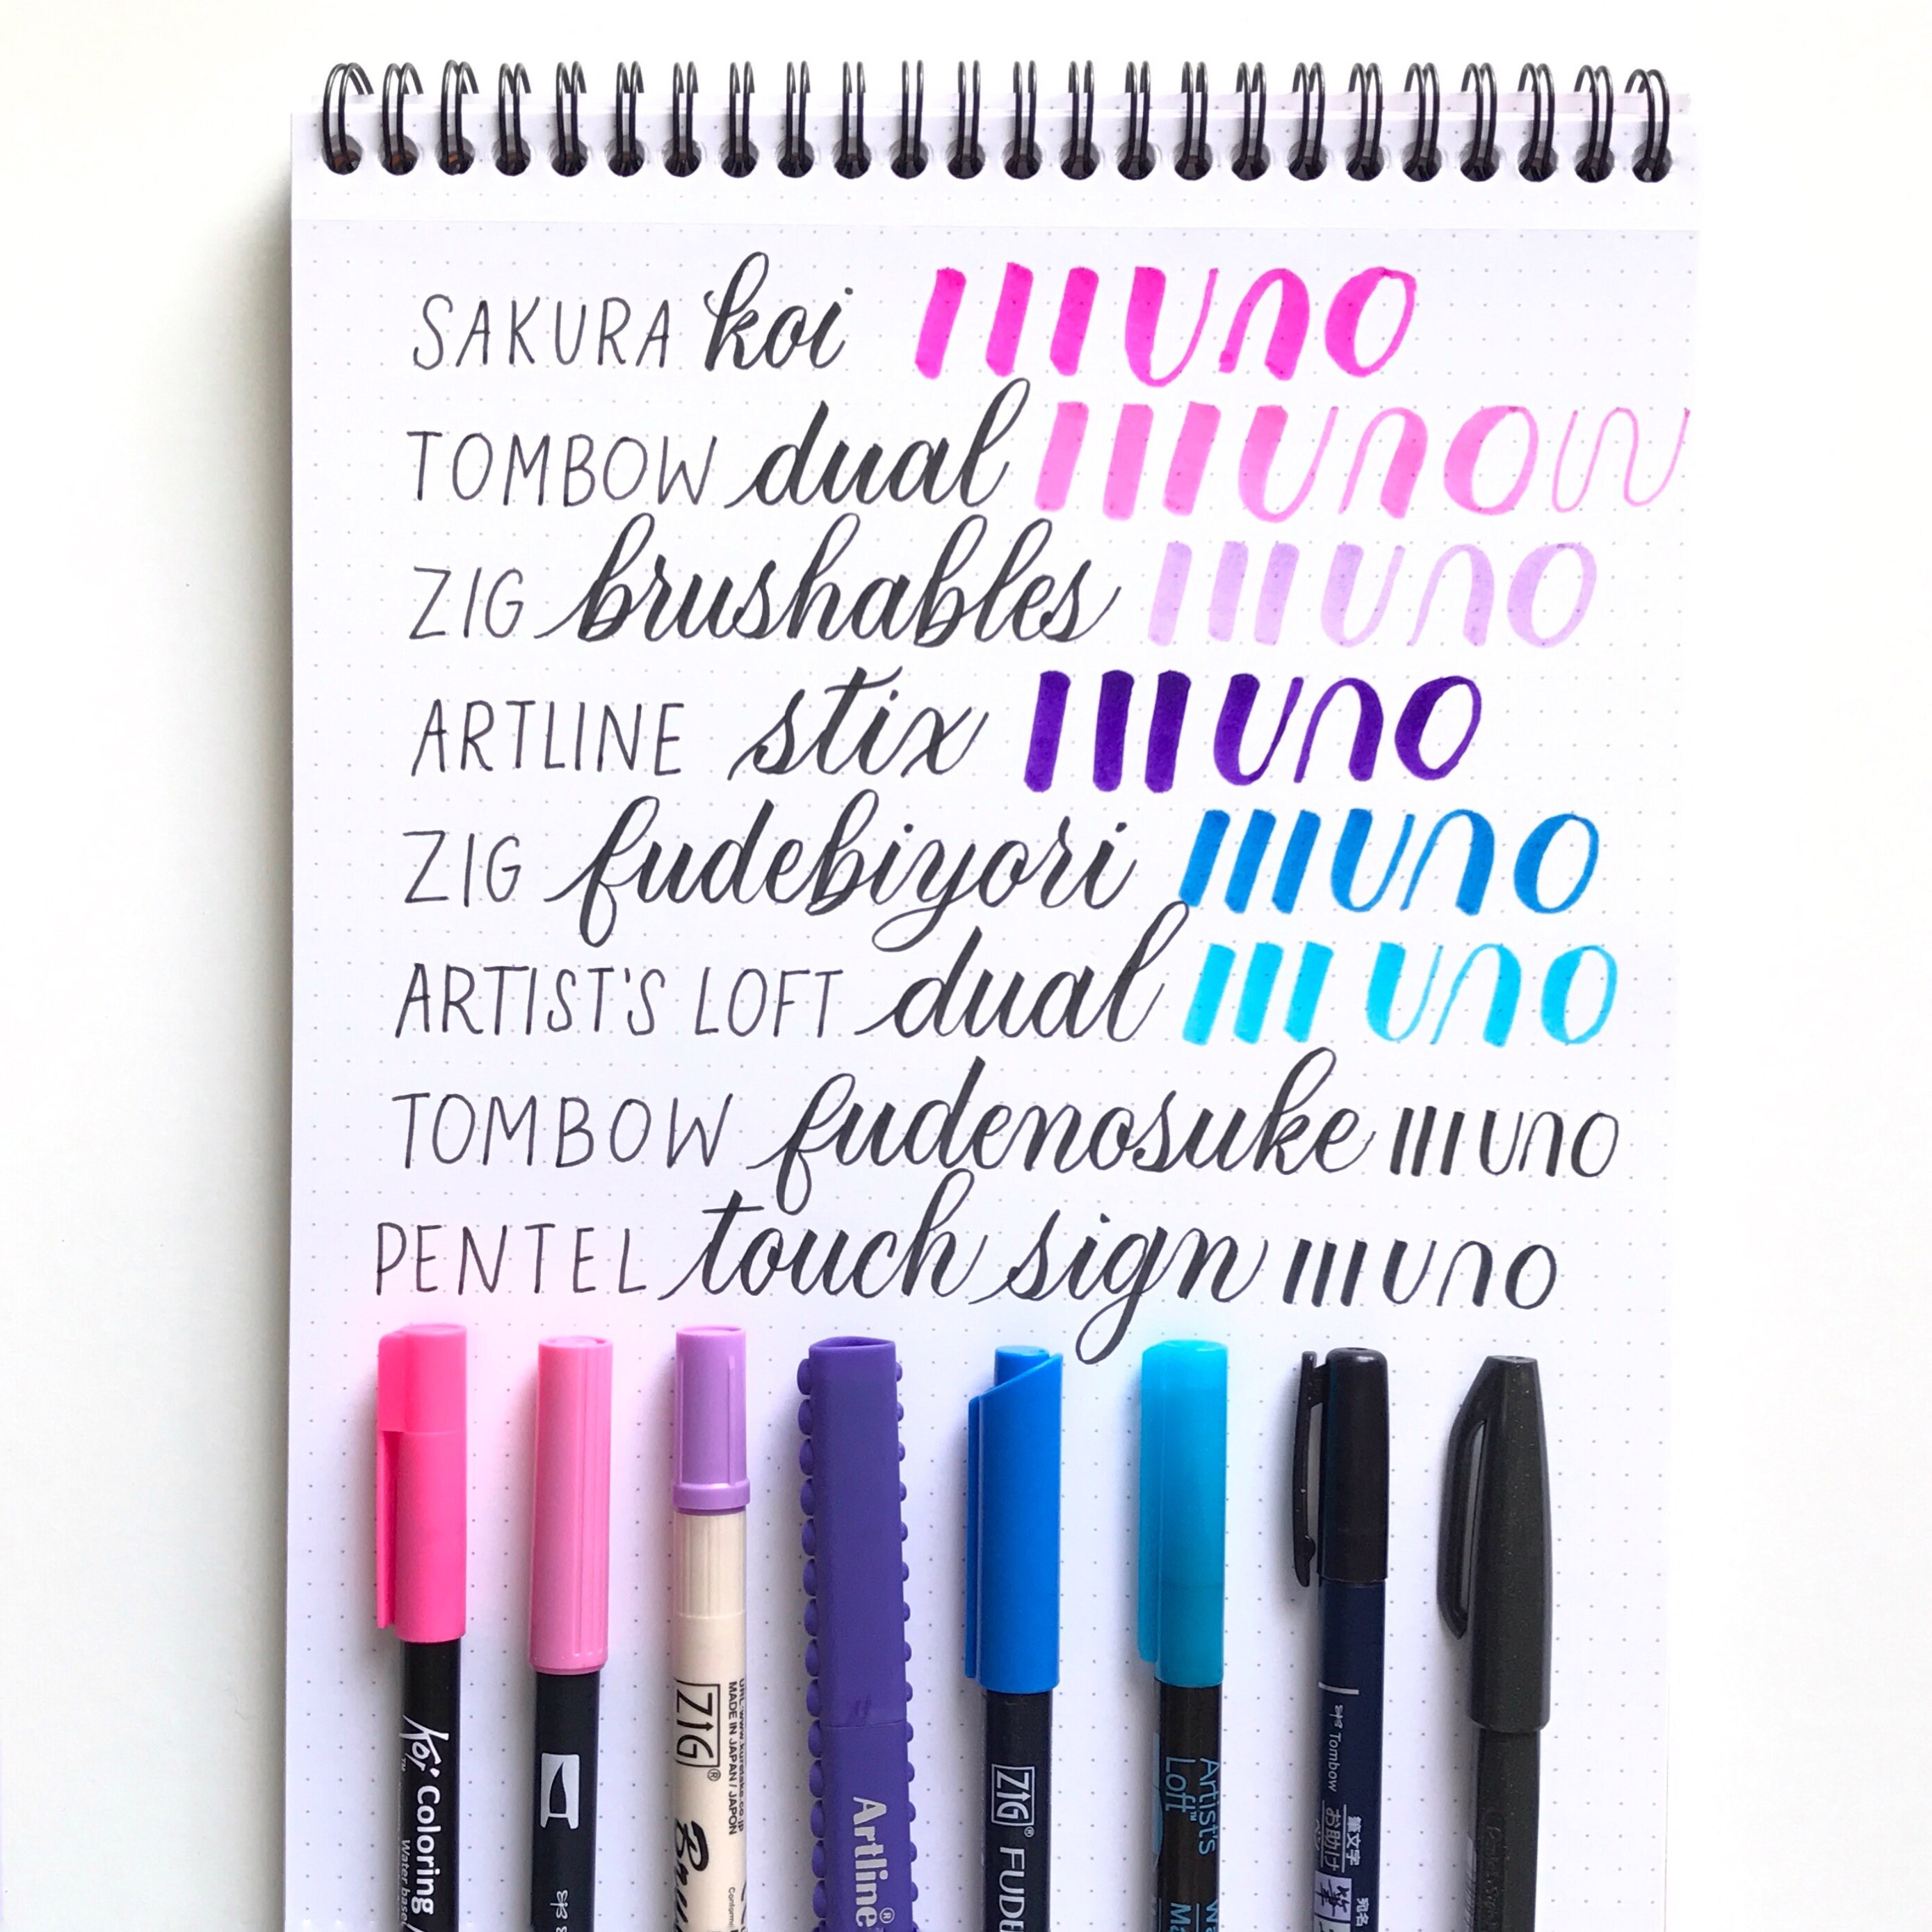 SAKURA koi IIIuno
TOMBOW dual IIIunow
ZIG brushables IIIuno
ARTLINE stix IIIuno
ZIG fudebiyori IIIuno
ARTIST'S LOFT dual IIIuno
TOMBOW fudenosuke IIIuno
PENTEL touch sign IIIuno
Koi Coloring
Water based
ZIG®
MADE IN JAPAN / JAPON
Artline®
ZIG® FUDE
Artist's
Loft™
Tombow
筆文字
お助け
宛名